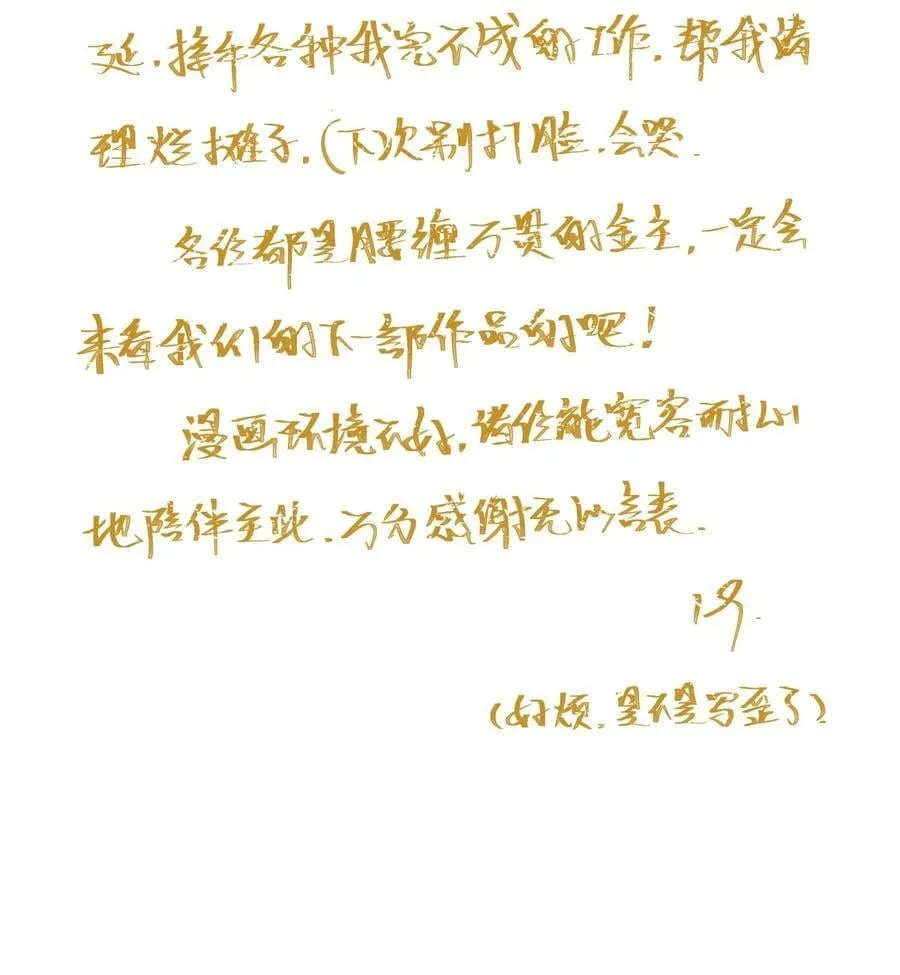 延.接手各种我完不成的工作.帮我清
理烂摊子.(下次别打脸.会哭.
各位都是腰缠万贯的金主,一定会
来看我们的下一部作品的吧!
漫画环境不好,诸位能宽容而热心
地陪伴至此.万分感谢无以言表.
(好烦.是不是写歪了)